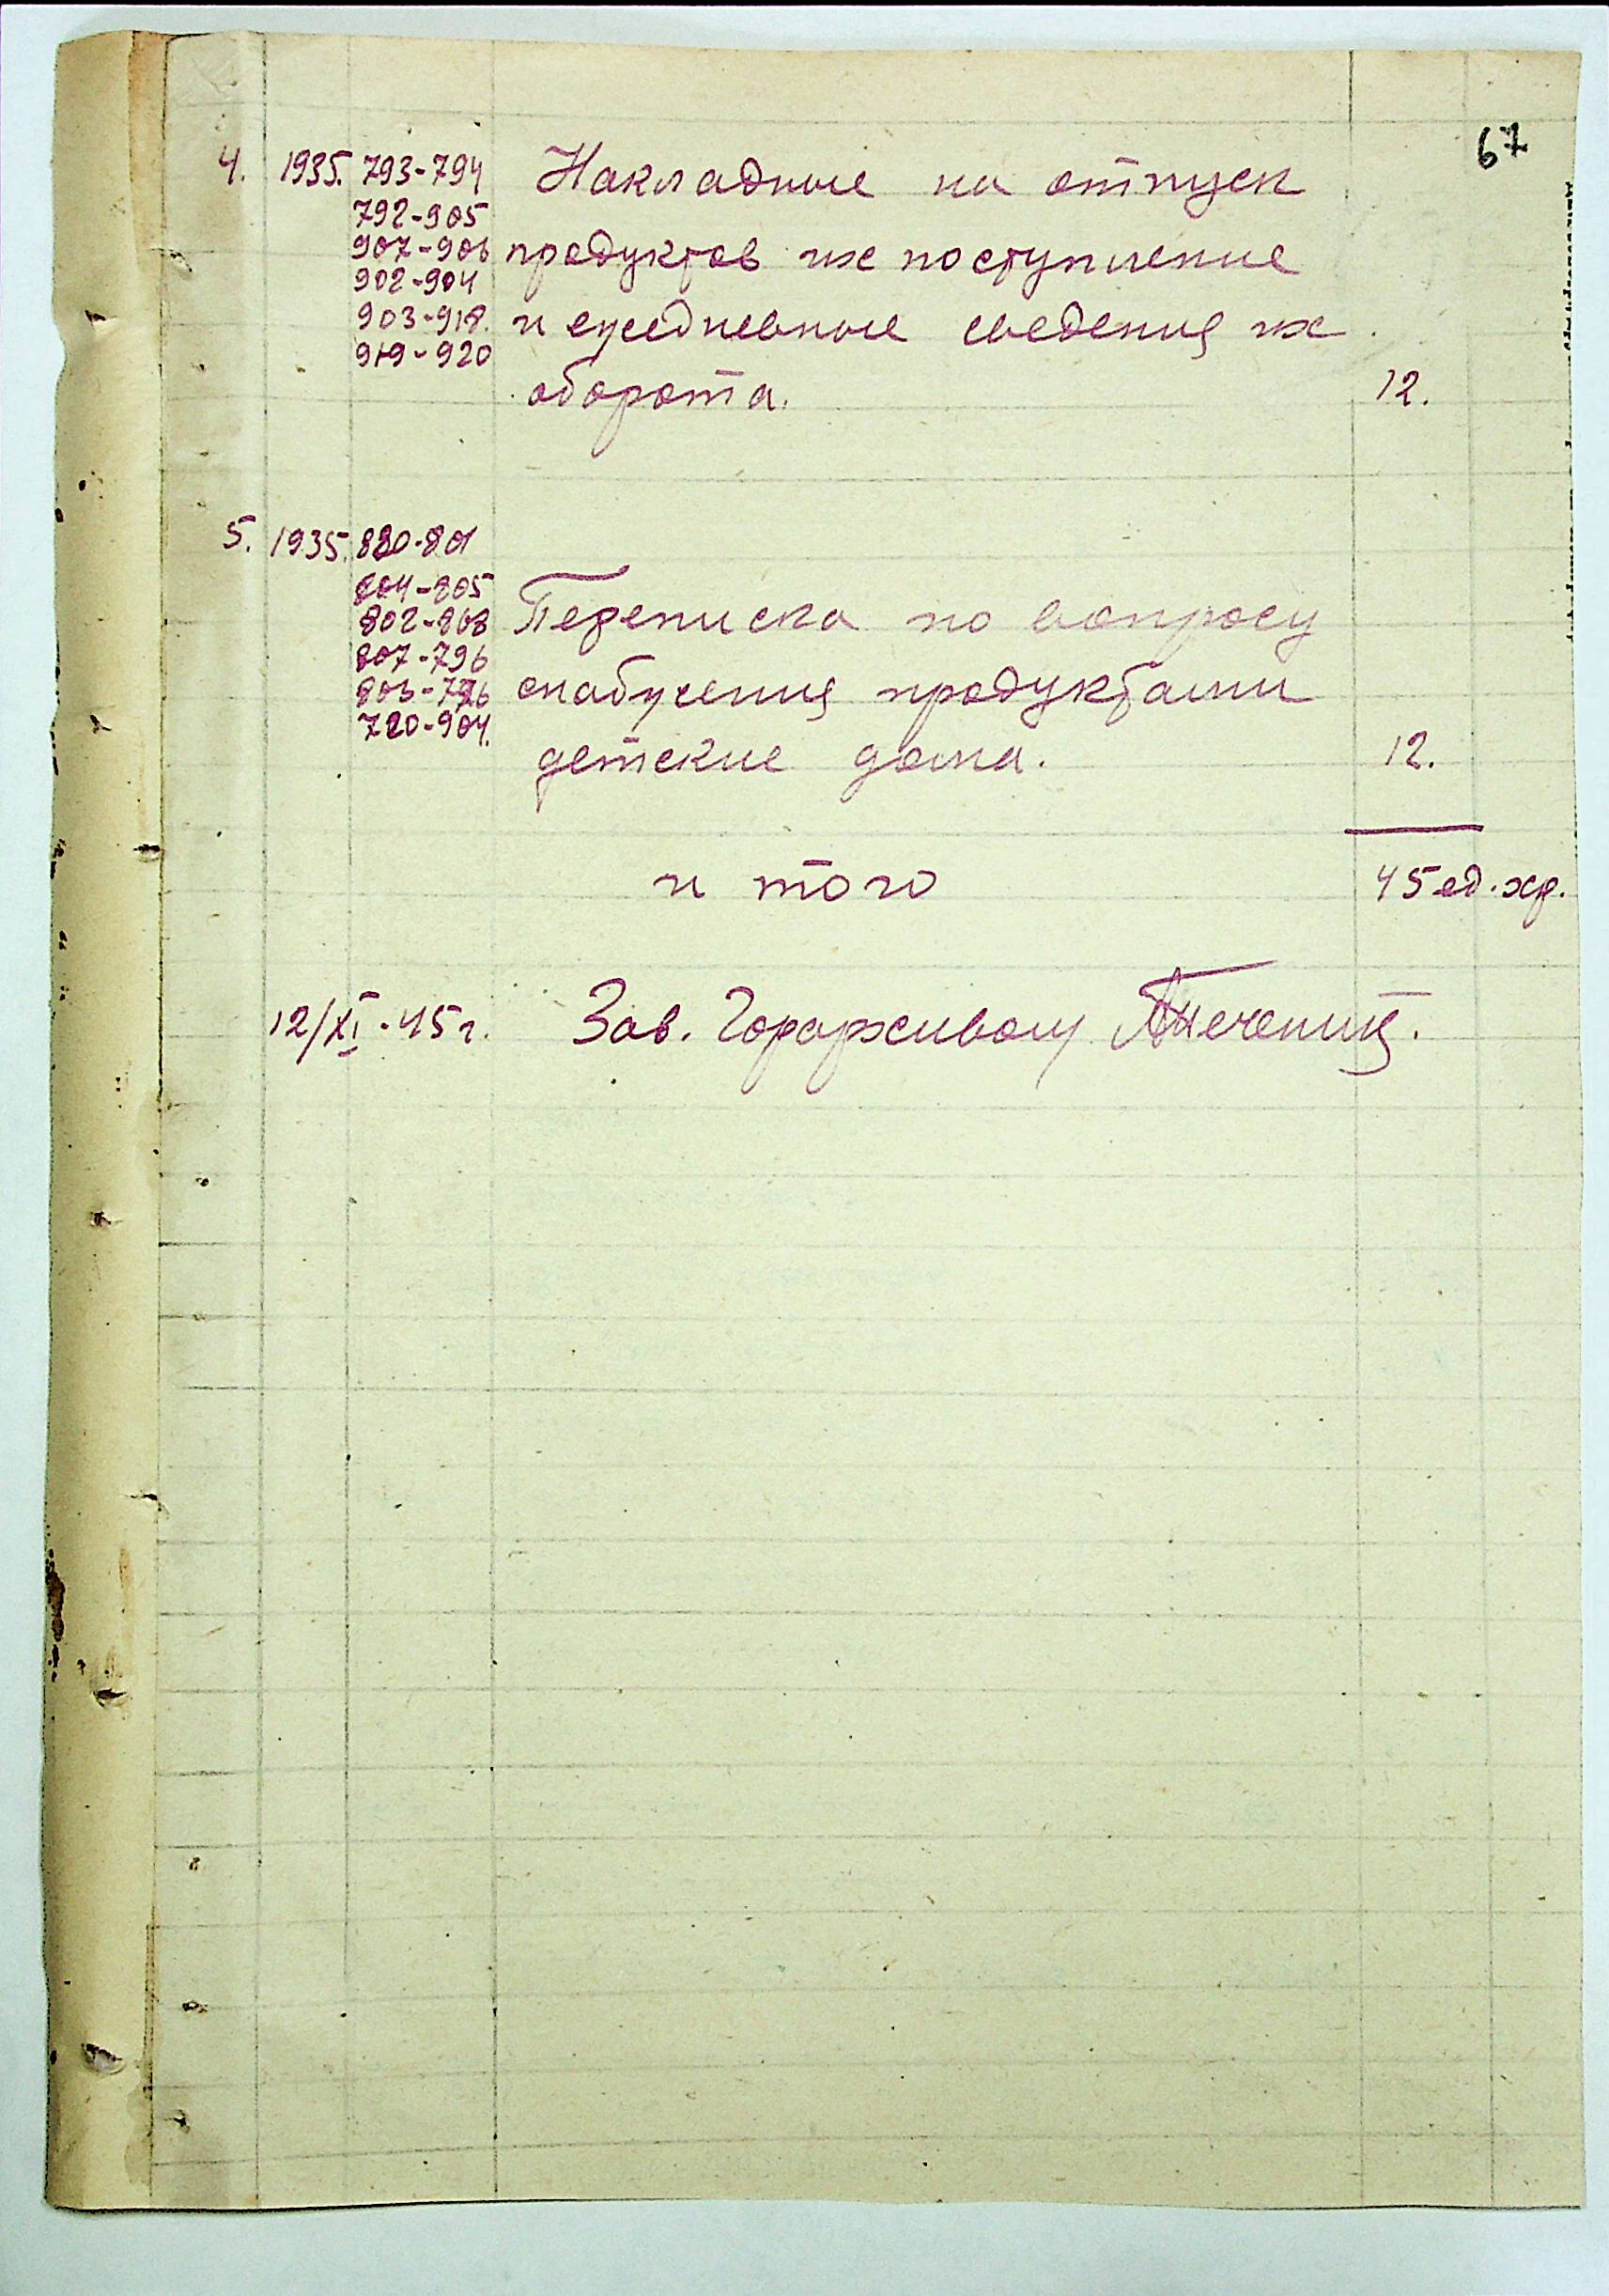 67
4. 1935. 793-794 Накладные на отпуск
792-905
907-906 продуктов их поступление
902-904
903-918. и ежедневные сведения их
919-920
оборота. 12.
5. 1935. 880-801
804-805
802-808 Переписка по вопросу
807-796
снабжения продуктами
720-904.
детские дома. 12.
и того 45 ед. хр.
12/XI-45 г. Зав. Горархивом